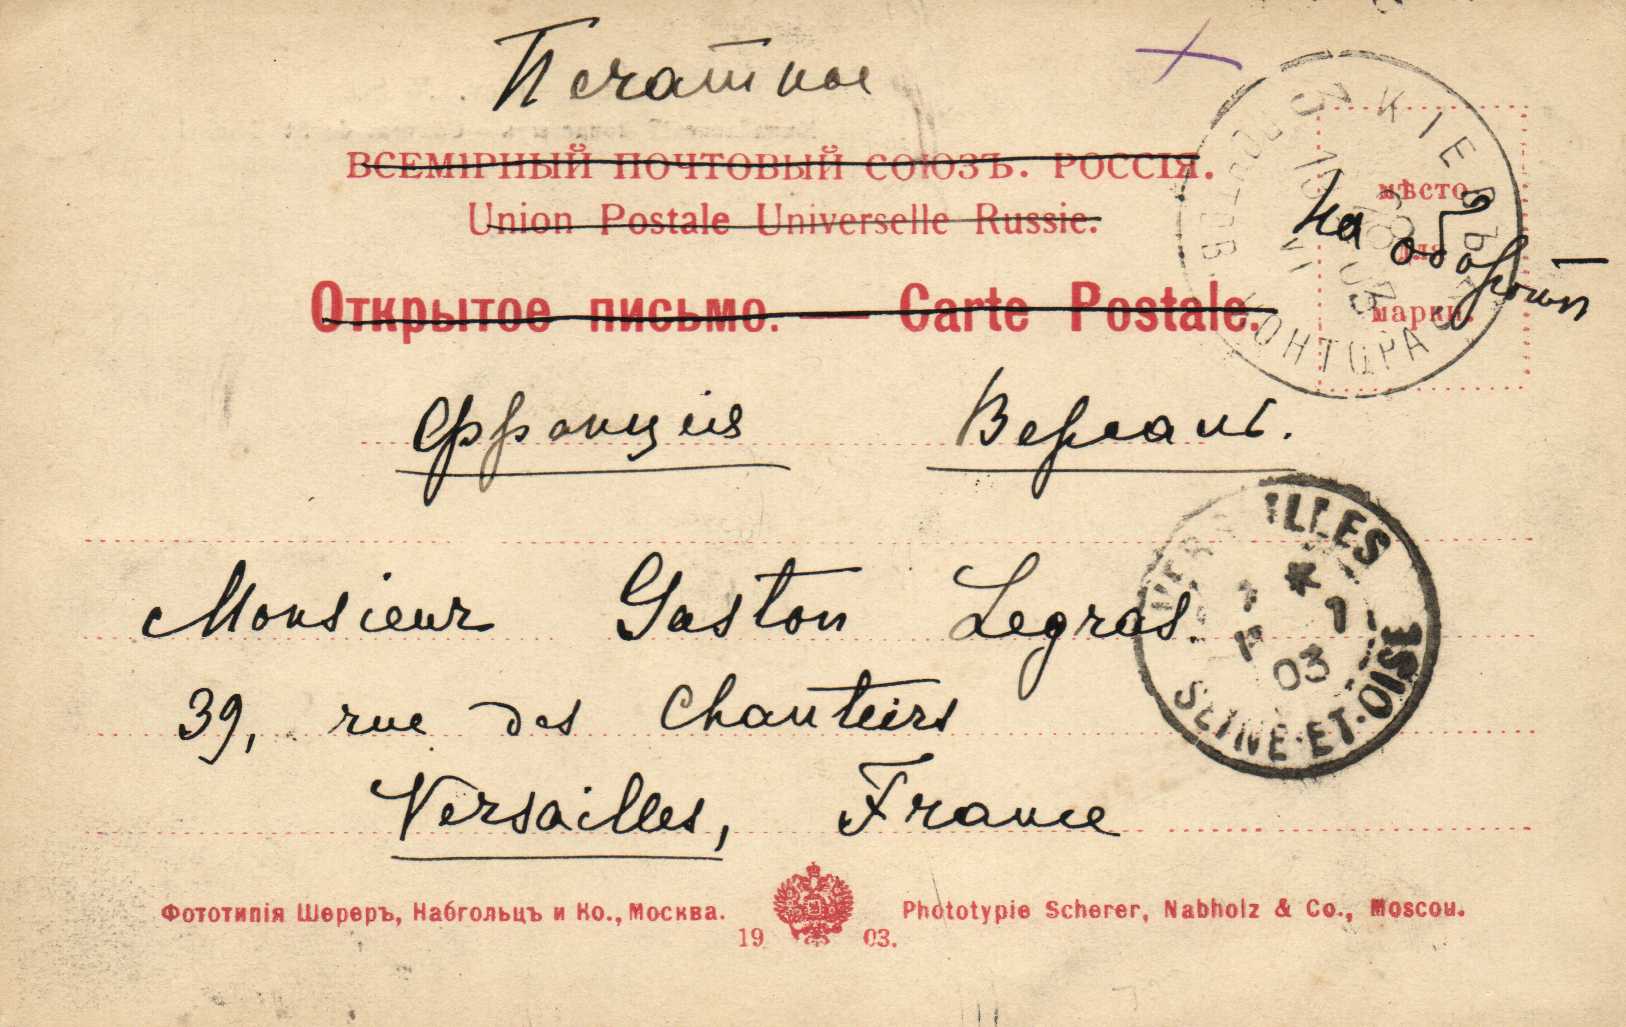 Печатное
ВСЕМІРНЫЙ ПОЧТОВЫЙ СОЮЗЪ. РОССІЯ.
Union Postale Universelle Russie.
Открытое письмо. — Carte Postale.
мѣсто
для
марки.
на оборотѣ
КІЕВЪ
ПОЧТОВ. КОНТОРА
03
Франція Версаль.
VERSAILLES
SEINE-ET-OISE
03
Monsieur Gaston Legras.
39, rue des Chantiers
Versailles, France
Фототипія Шереръ, Набгольцъ и Ко., Москва.
Phototypie Scherer, Nabholz & Co., Moscou.
1903.